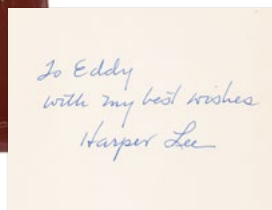 To Eddy
with my best wishes
Harper Lee